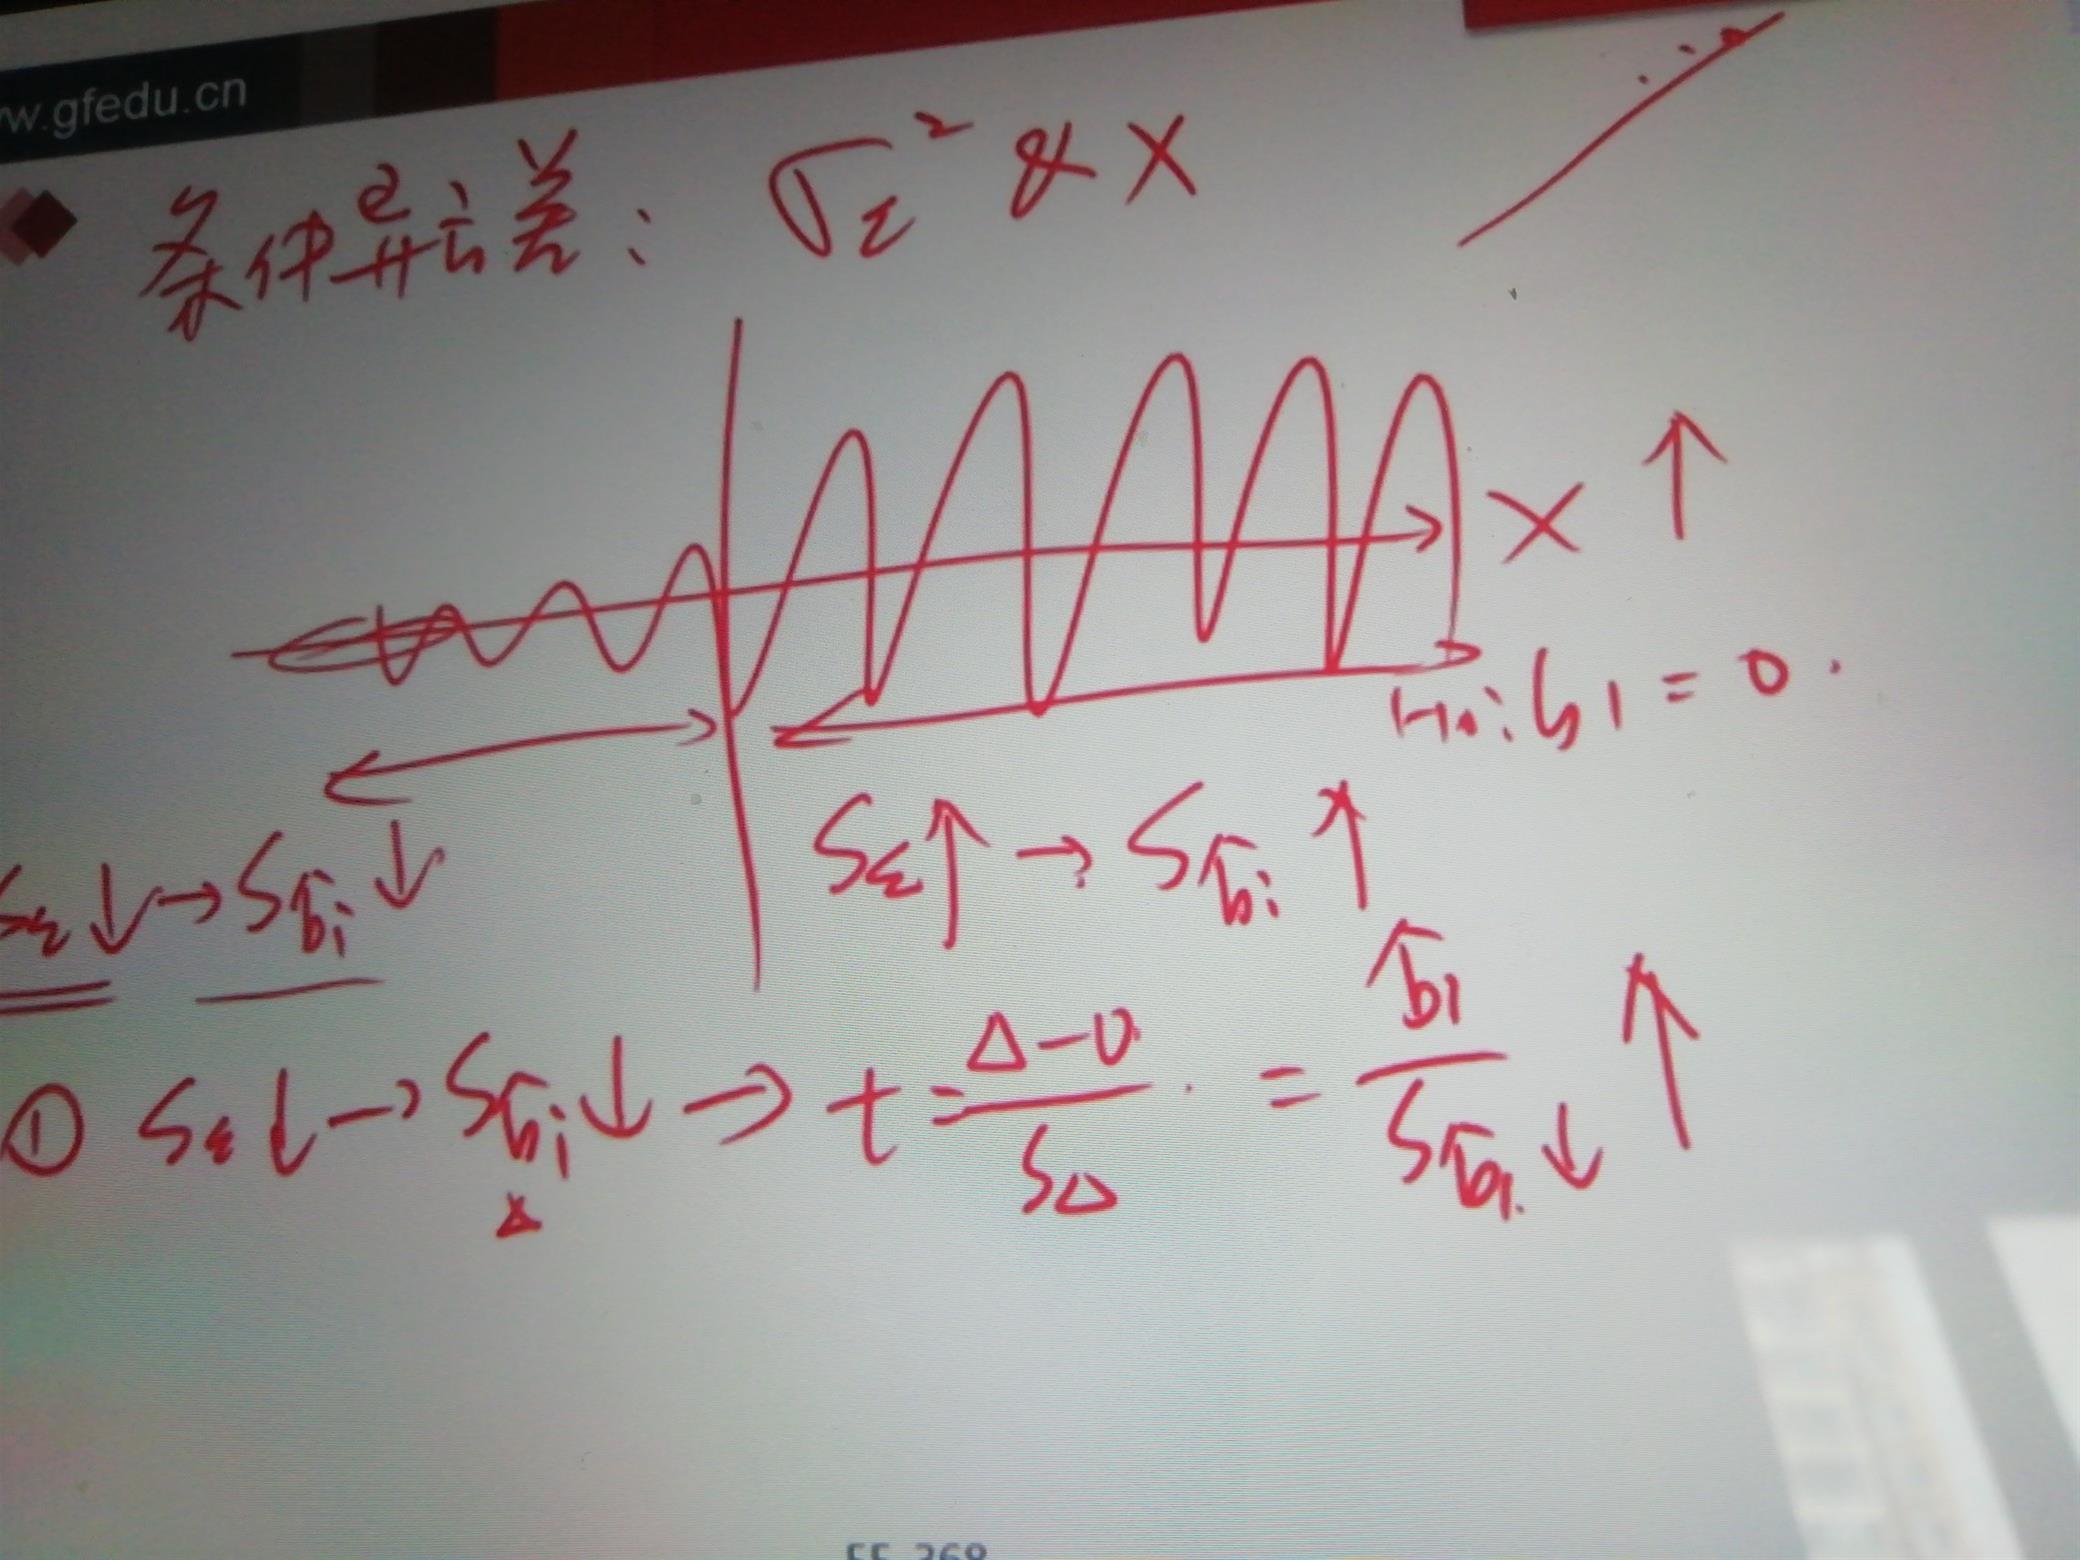 w.gfedu.cn
条件异方差: σε² & X
X ↑
H₀: b₁ = 0.
Sε ↓ → Sb̂i ↓
Sε ↑ → Sb̂i ↑
① Sε ↓ → Sb̂i ↓ → t = Δ-0 / SΔ = b̂1 / Sb̂1 ↓ ↑
55-368